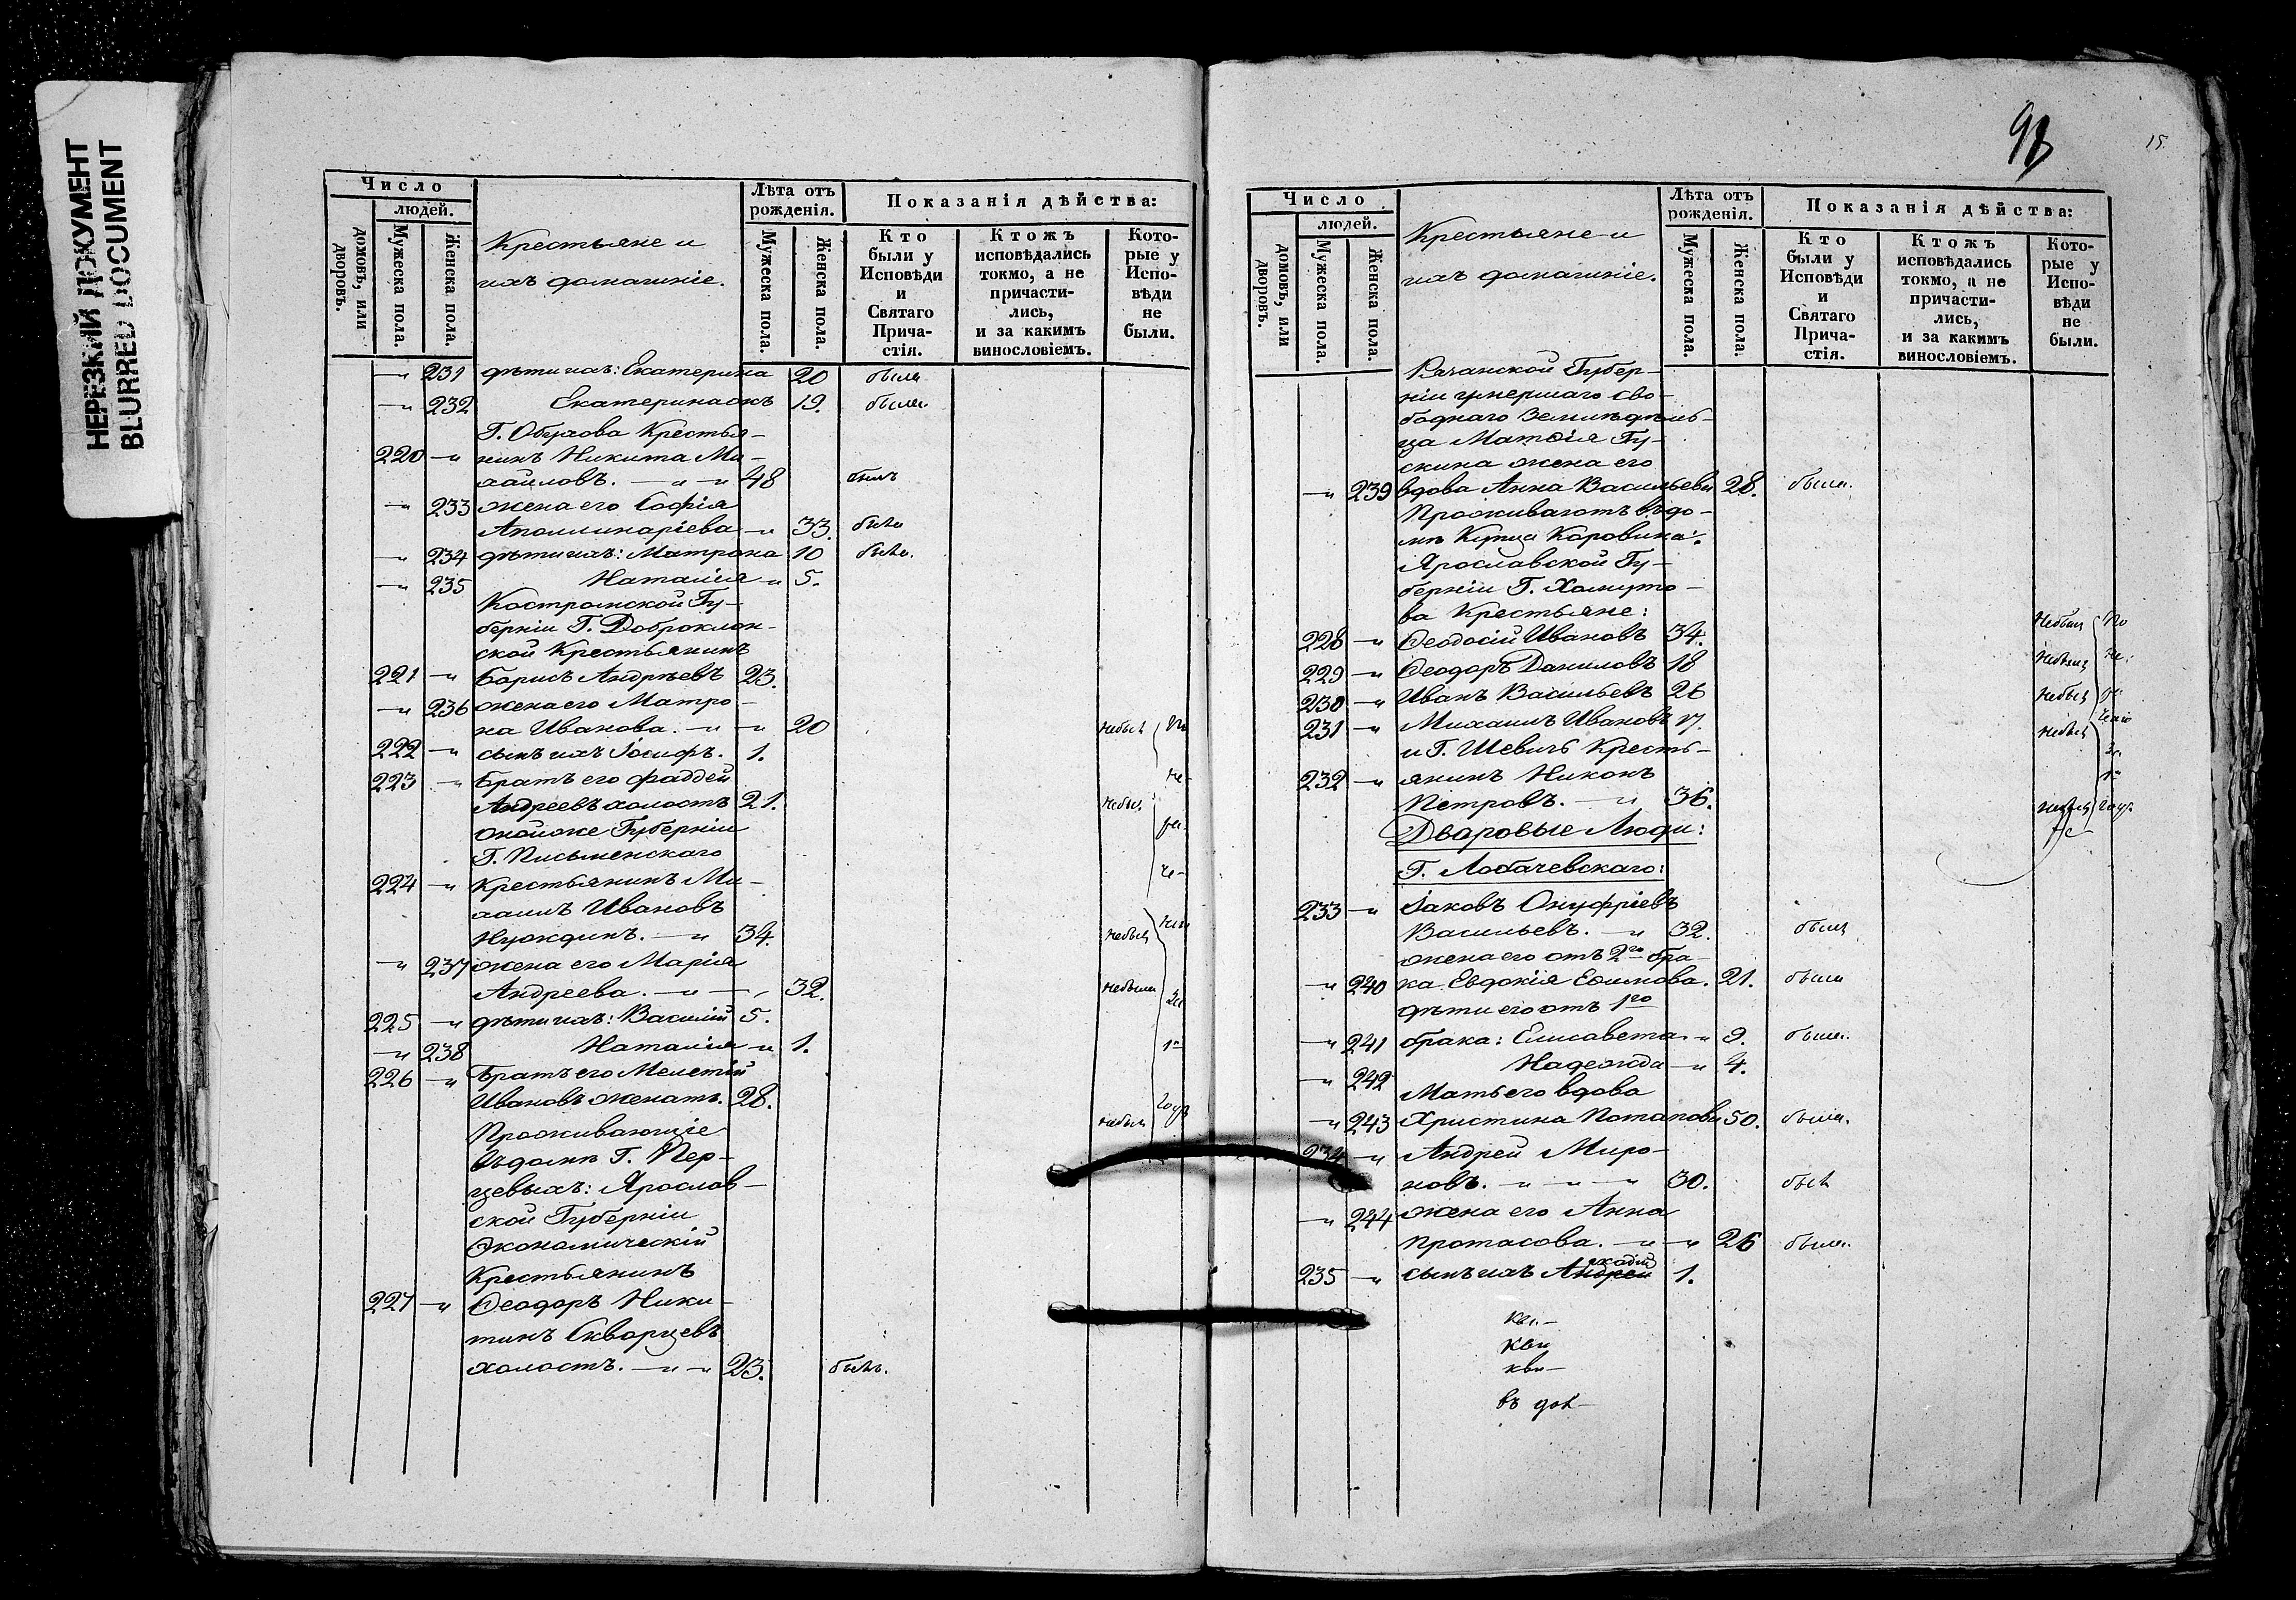 НЕРЕЗКИЙ ДОКУМЕНТ
BLURRED DOCUMENT
Число
людей.
домовъ, или дворовъ.
Мужеска пола.
Женска пола.
Крестьяне и
ихъ домашніе.
Лѣта отъ рожденія.
Мужеска пола.
Женска пола.
Показанія дѣйства:
Кто были у Исповѣди и Святаго Прича-стія.
Ктожъ исповѣдались токмо, а не причасти-лись, и за какимъ винословіемъ.
Кото-рые у Испо-вѣди не были.
—„ 231 дѣти ихъ: Екатерина 20 была
—„ 232 Екатерина 19. была
Г. Обухова Крестья-
220 —„ нинъ Никита Ми-
хайловъ. —„—„ 48 былъ
—„ 233 жена его Софія
Аполлинаріева —„ 33. была
—„ 234 дѣти ихъ: Матрона 10 была.
—„ 235 Наталія —„ 5.
Костромской Гу-
берніи Г. Доброклон-
ской Крестьянинъ
221 —„ Борисъ Андреевъ 23.
—„ 236 жена его Матро-
на Иванова. —„—„ 20 небыла по
222 —„ сынъ ихъ Іосифъ. 1.
223 —„ Братъ его Фаддей не-
Андреевъ холостъ 21. небыл.
оной же Губерніи ра-
Г. Письменскаго
224 —„ Крестьянинъ Ми- че-
хаилъ Ивановъ
Нуждинъ. —„ 34. небылъ нію
—„ 237 жена его Марія
Андреева. —„— 32. небыла За
225 —„ дѣти ихъ: Василій 5.
—„ 238 Наталія —„ 1. 1й
226 —„ Братъ его Мелетій
Ивановъ женатъ. 28. небылъ годъ
Проживающіе
въ домѣ Г. Пер-
цевыхъ: Ярослав-
ской Губерніи
Экономическій
Крестьянинъ
227 —„ Ѳеодоръ Ники-
тинъ Скворцевъ
холостъ. —„—„ 23. былъ.
93
15.
Число
людей.
домовъ, или дворовъ.
Мужеска пола.
Женска пола.
Крестьяне и
ихъ домашніе.
Лѣта отъ рожденія.
Мужеска пола.
Женска пола.
Показанія дѣйства:
Кто были у Исповѣди и Святаго Прича-стія.
Ктожъ исповѣдались токмо, а не причасти-лись, и за какимъ винословіемъ.
Кото-рые у Испо-вѣди не были.
Рязанской Губер-
ніи умершаго сво-
боднаго Земледѣль-
ца Матѳія Гу-
скина жена его
—„ 239 вдова Анна Васильева 28. была.
Проживаютъ въ до-
мѣ Купца Коровина:
Ярославской Гу-
берніи Г. Хомуто-
ва Крестьяне:
228 —„ Ѳеодосій Ивановъ 34. небылъ по
229 —„ Ѳеодоръ Даниловъ 18 небылъ не-
230 —„ Иванъ Васильевъ 26 небылъ ра-
231 —„ Михаилъ Ивановъ 17. небылъ ченію
и Г. Шевичъ Кресть- За
232 —„ янинъ Никонъ 1й
Петровъ. —„ 36. небылъ годъ
Дворовые Люди:
Г. Лобачевскаго:
233 —„ Іаковъ Онуфріевъ
Васильевъ. —„ 32. былъ
жена его отъ 2го бра-
—„ 240 ка Евдокія Ефимова. 21. была
дѣти его отъ 1го
—„ 241 брака: Елисавета —„ 9. была.
—„ 242 Надежда —„ 4.
Мать его вдова
—„ 243 Христина Потапова 50. была.
234 —„ Андрей Миро-
новъ. —„—„— 30. былъ
—„ 244 жена его Анна
Протасова. —„—„ 26 была.
235 —„ сынъ ихъ Андрей 1.